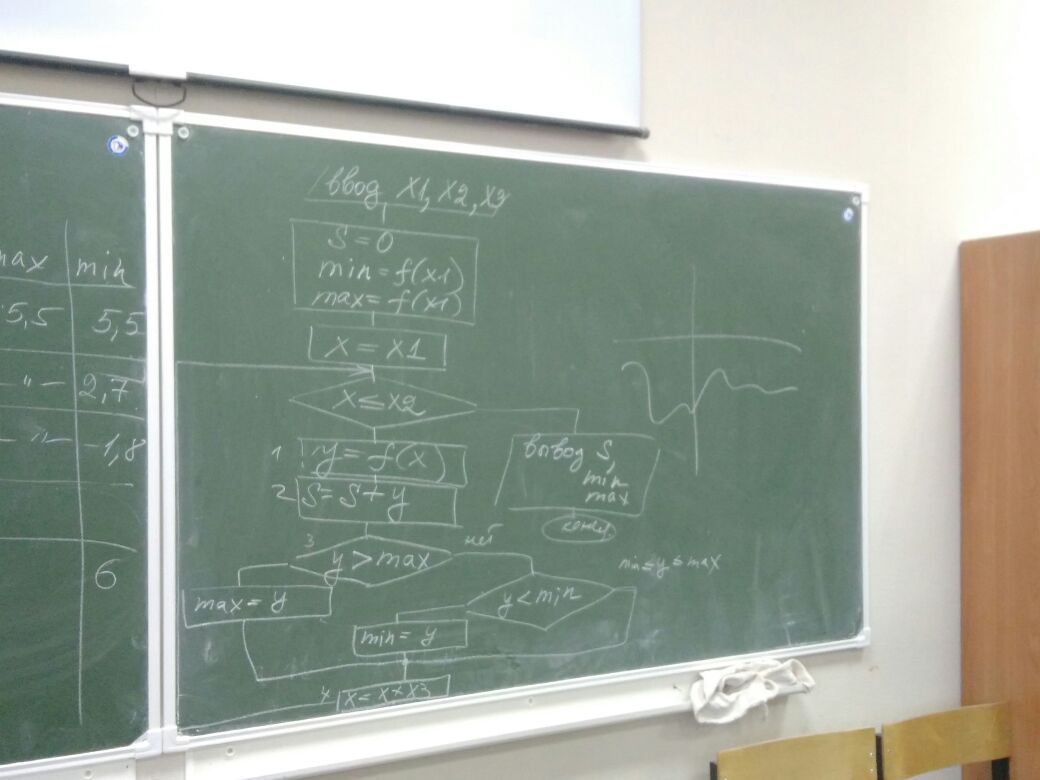 max min
5,5 5,5
–"– 2,7
–"– –1,8
6
ввод x1, x2, x3
S = 0
min = f(x1)
max = f(x1)
x = x1
x ≤ x2
1 y = f(x)
2 S = S + y
3 y > max
нет
max = y
y < min
min = y
4 x = x + x3
вывод S,
min
max
конец
min ≤ y ≤ max